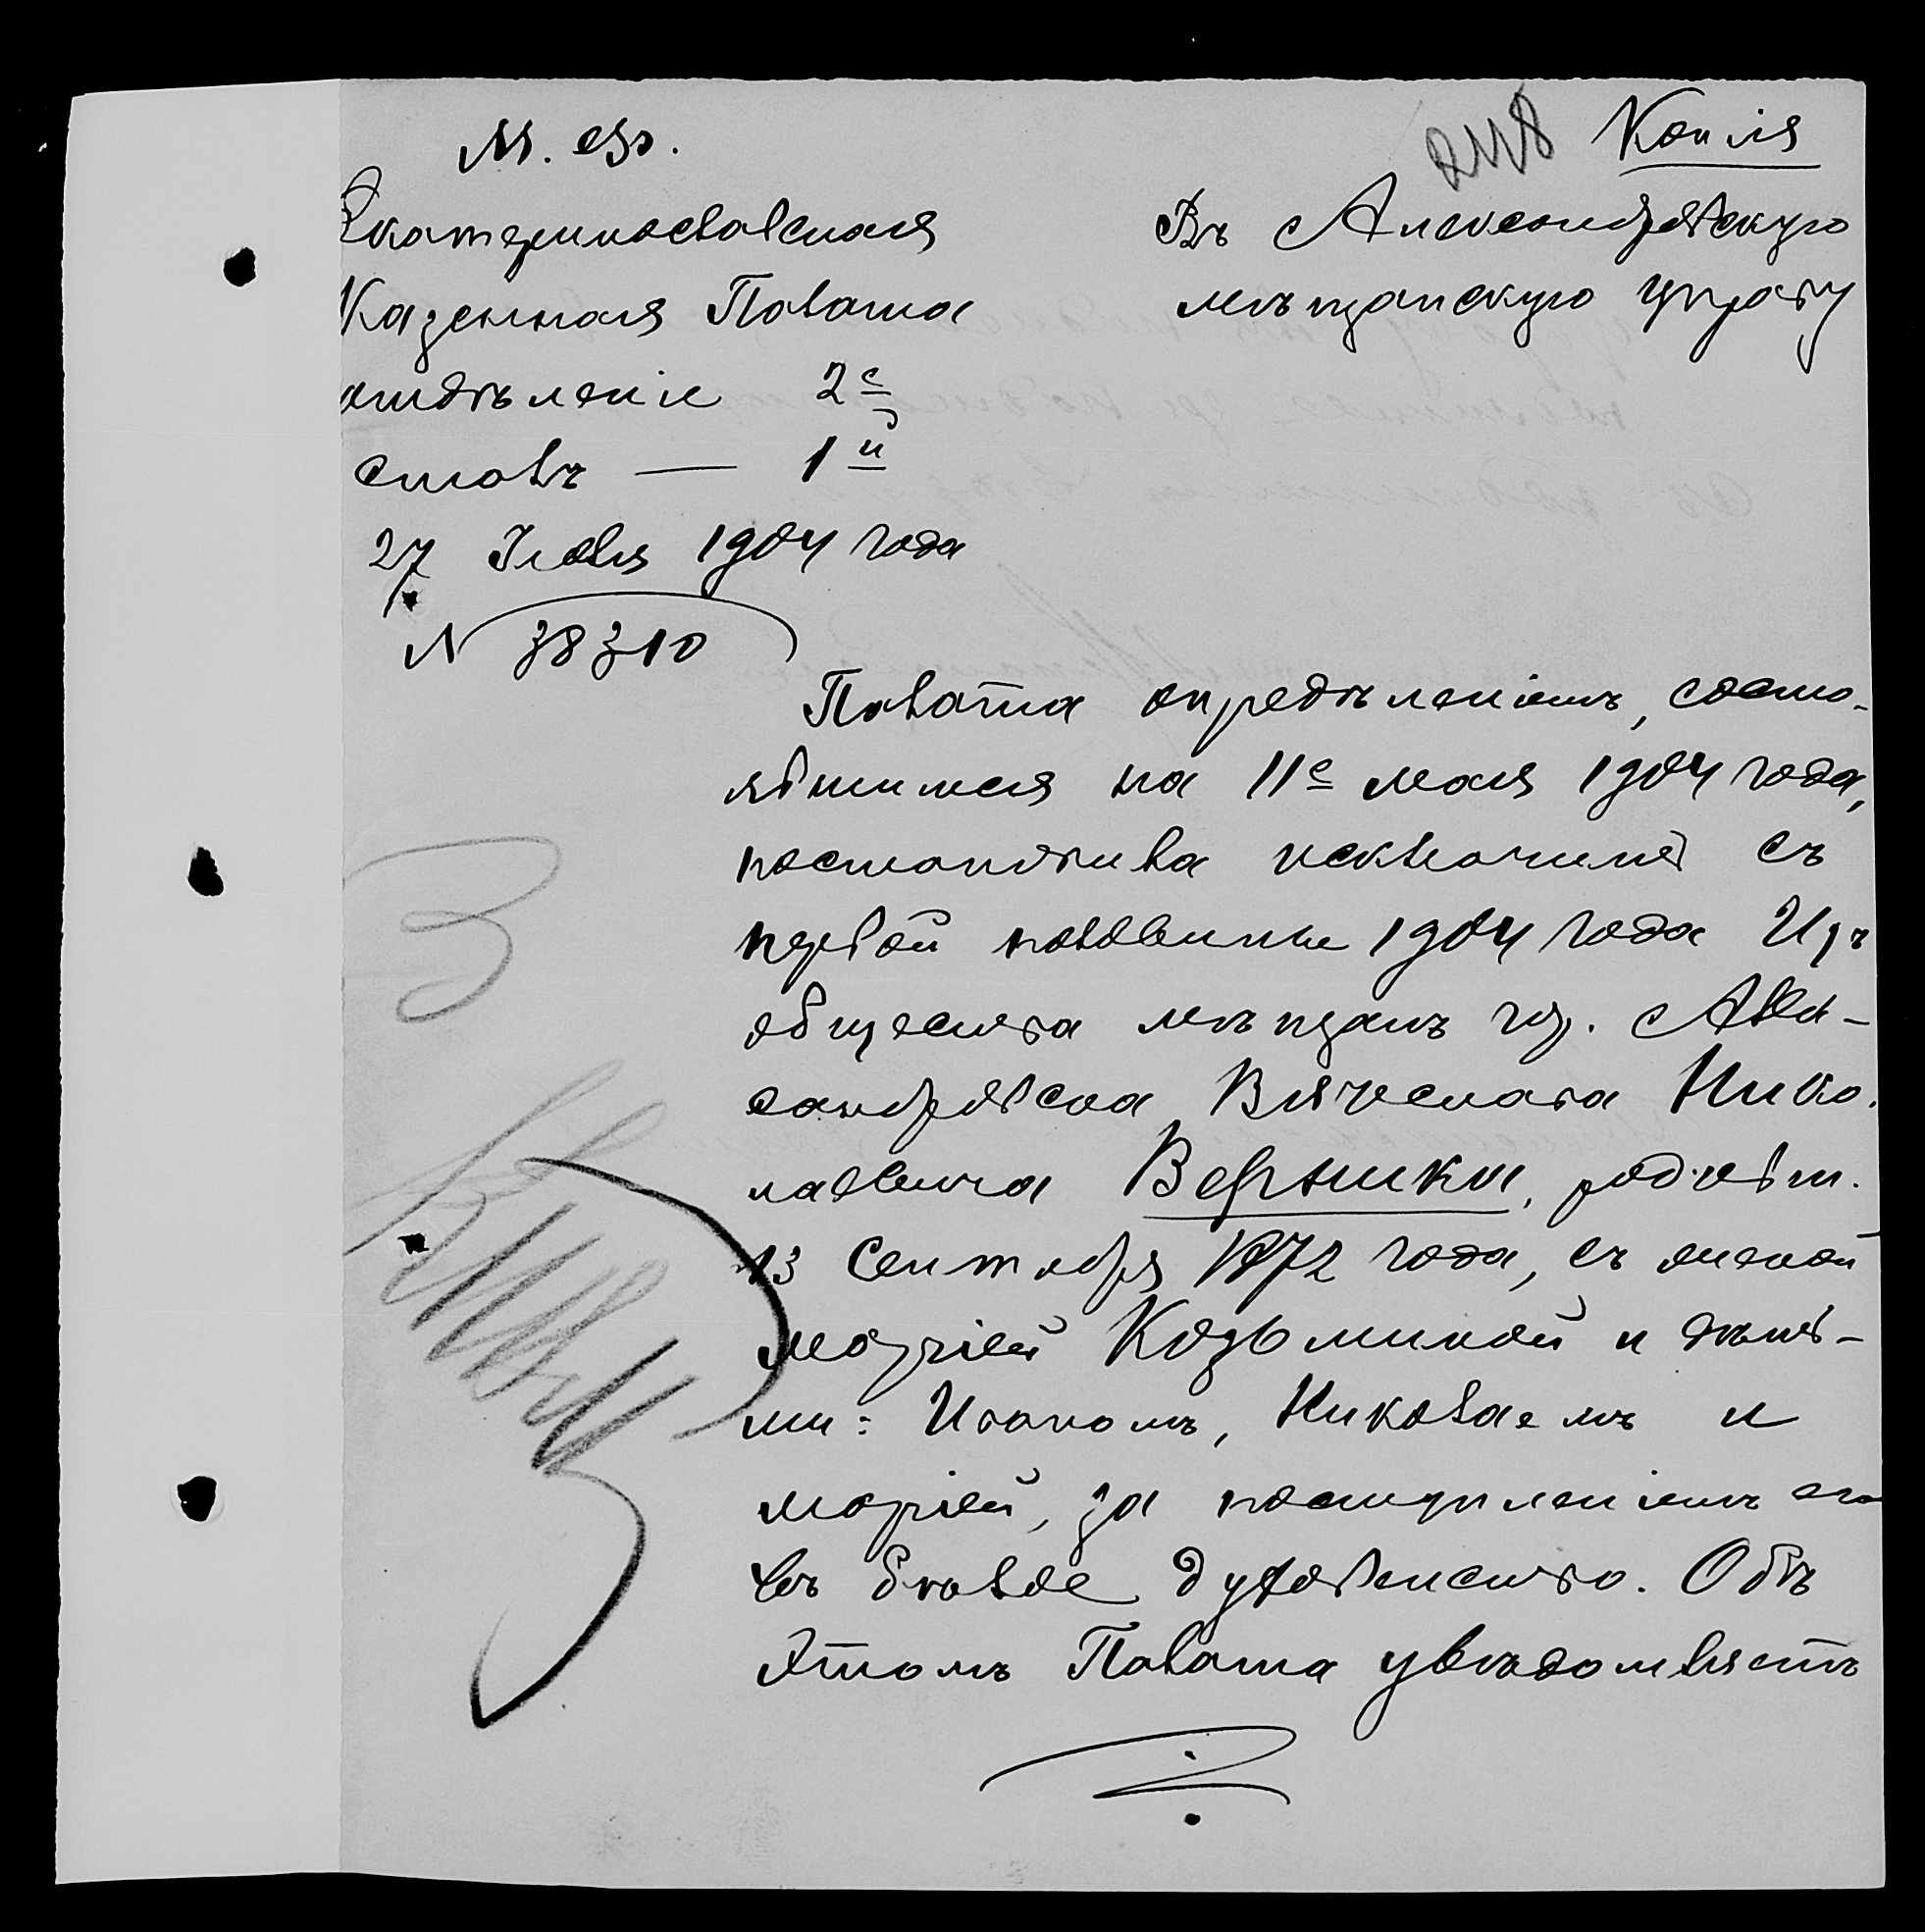 М. Ф.
Копія
Екатеринославская
Казенная Палата
отдѣленіе 2е
столъ — 1й
27 Іюля 1904 года
N 38310
Въ Александровскую
мѣщанскую управу
Палата опредѣленіемъ, состо-
явшимся на 11е мая 1904 года,
постановила исключить съ
первой половины 1904 года изъ
общества мѣщанъ гор. Алек-
сандровска Вячеслава Нико-
лаевича Верныки, родивш.
13 Сентября 1872 года, съ женой
Маріей Козьминой и дѣть-
ми: Иваномъ, Николаемъ и
Маріей, за поступленіемъ его
въ бѣлое духовенство. Объ
этомъ Палата увѣдомляетъ